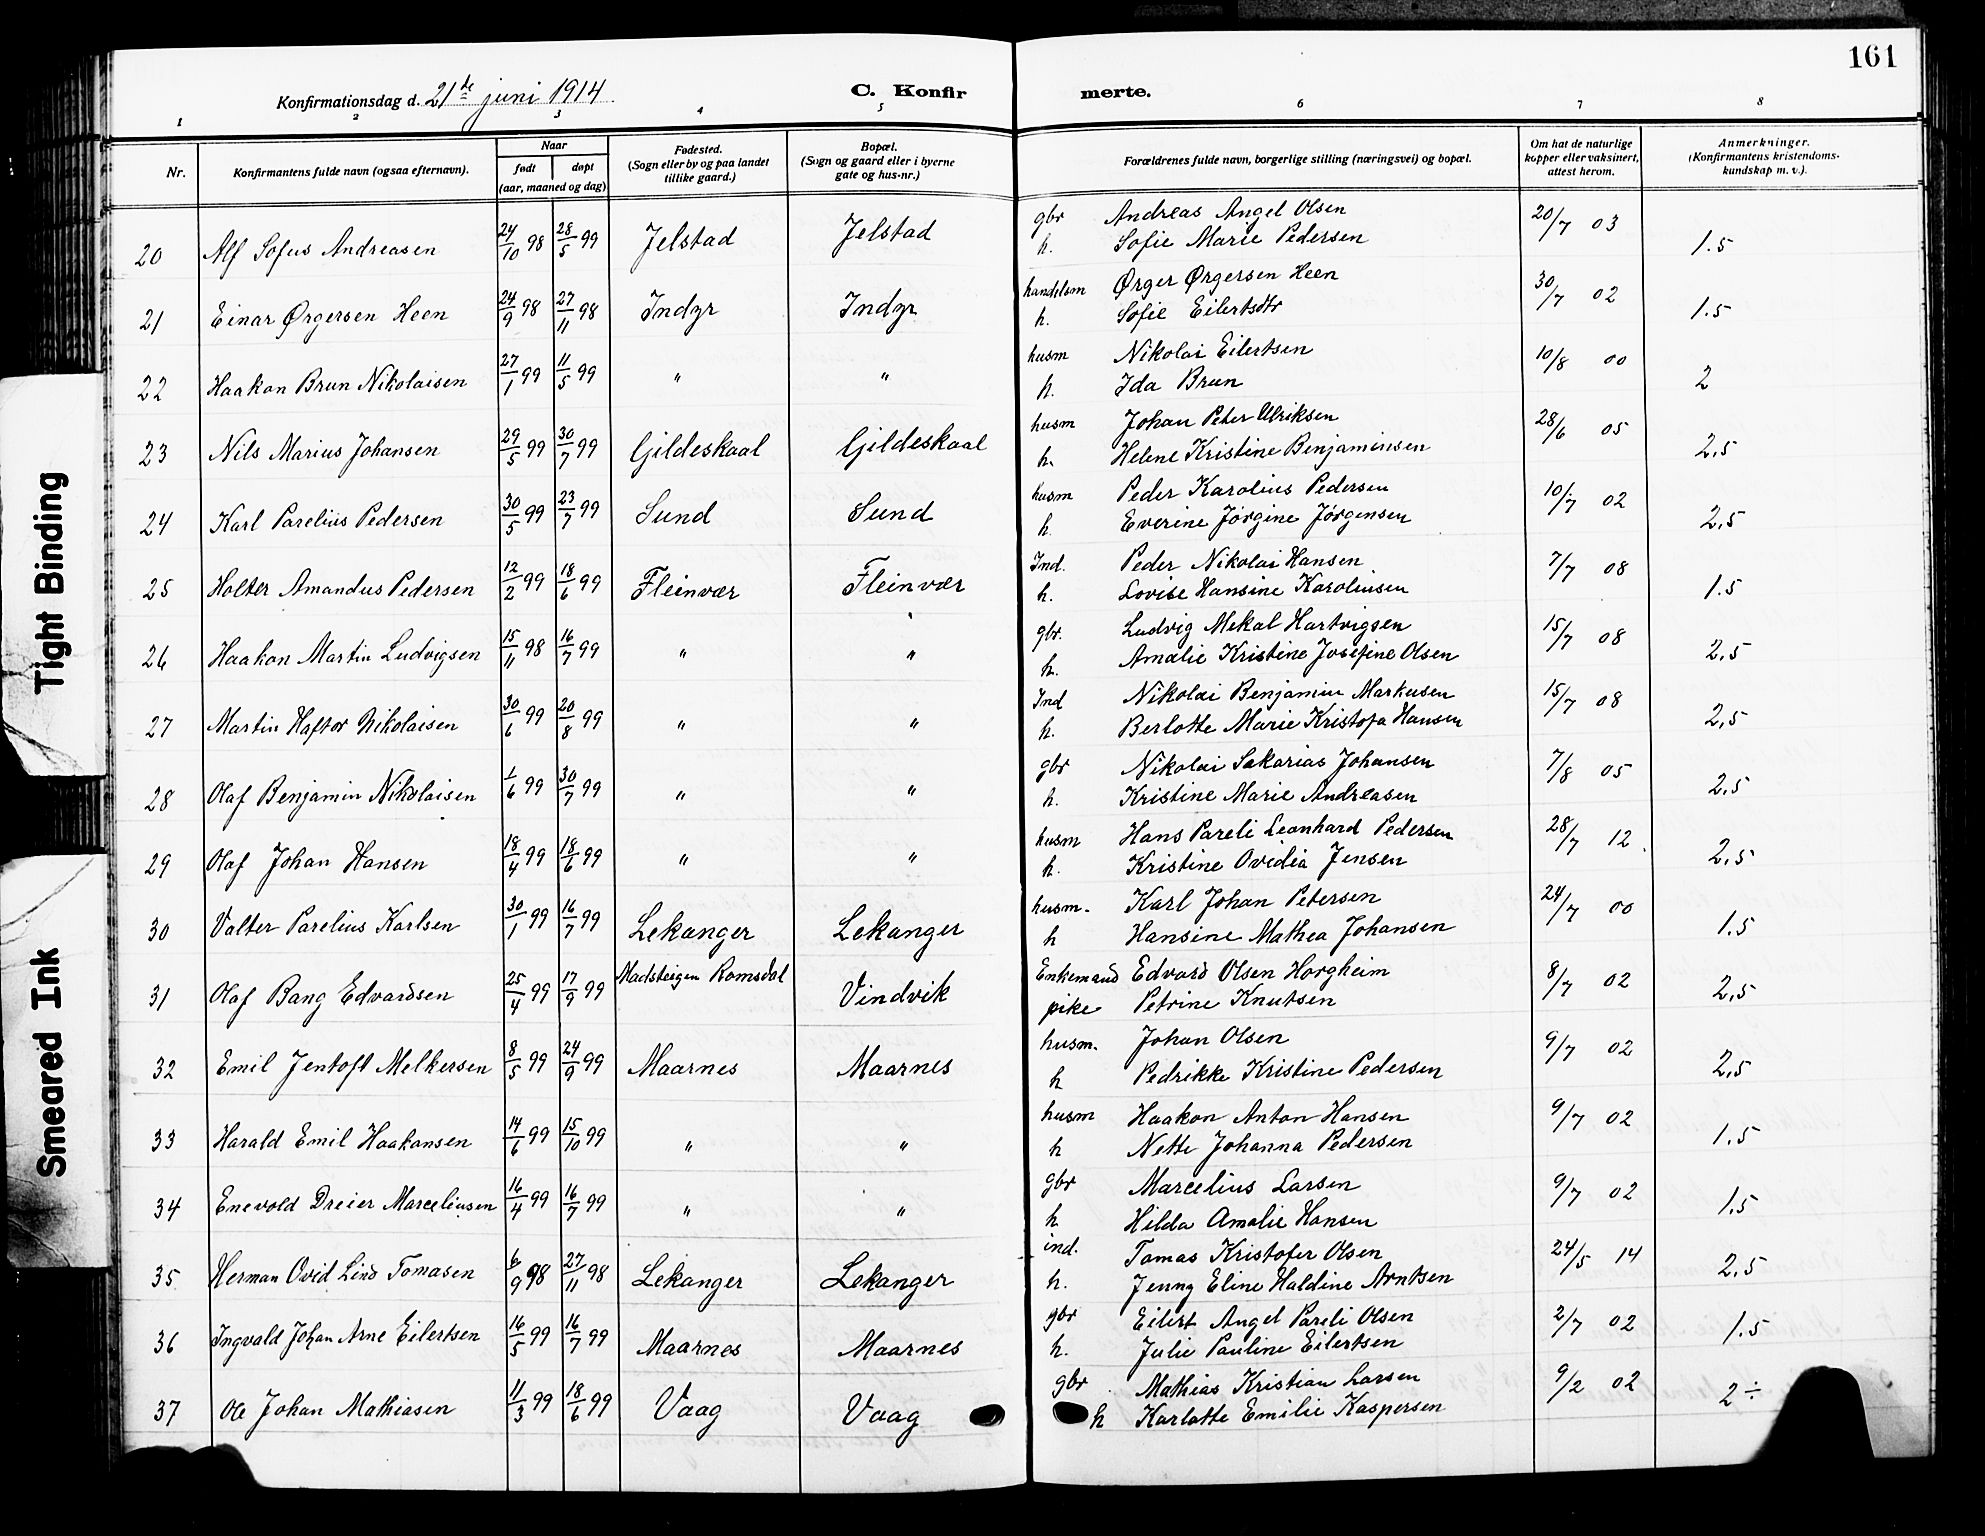 161
Konfirmationsdag d. 21de juni 1914.
C. Konfirmerte.
1 2 3 4 5 6 7 8
Nr.
Konfirmantens fulde navn (ogsaa efternavn).
Naar
født døpt
(aar, maaned og dag)
Fødested.
(Sogn eller by og paa landet
tillike gaard.)
Bopæl.
(Sogn og gaard eller i byerne
gate og hus-nr.)
Forældrenes fulde navn, borgerlige stilling (næringsvei) og bopæl.
Om hat de naturlige
kopper eller vaksinert,
attest herom.
Anmerkninger.
(Konfirmantens kristendoms-
kundskap m. v.).
20 Alf Sofus Andreasen 24/10 98 28/5 99 Jelstad Jelstad gbr Andreas Angel Olsen 20/7 03 1.5
h. Sofie Marie Pedersen
21 Einar Ørgersen Heen 24/9 98 27/11 98 Indyr Indyr handelsm Ørger Ørgersen Heen 30/7 02 1.5
h. Sofie Eilertsdtr
22 Haakon Brun Nikolaisen 27/1 99 11/5 99 " " husm Nikolai Eilertsen 10/8 00 2
h. Ida Brun
23 Nils Marius Johansen 29/5 99 30/7 99 Gildeskaal Gildeskaal husm Johan Peter Ulriksen 28/6 05 2,5
h. Helene Kristine Benjaminsen
24 Karl Parelius Pedersen 30/5 99 23/7 99 Sund Sund husm Peder Karolius Pedersen 10/7 02 2,5
h. Everine Jørgine Jørgensen
25 Holter Amandus Pedersen 12/2 99 18/6 99 Fleinvær Fleinvær Ind. Peder Nikolai Hansen 7/7 08 1.5
h. Lovise Hansine Karoliusen
26 Haakon Martin Ludvigsen 15/11 98 16/7 99 " " gbr. Ludvig Mekal Hartvigsen 15/7 08 2,5
h. Amalie Kristine Josefine Olsen
27 Martin Haftor Nikolaisen 30/6 99 20/8 99 " " Ind Nikolai Benjamin Markusen 15/7 08 2,5
h. Berlotte Marie Kristofa Hansen
28 Olaf Benjamin Nikolaisen 1/6 99 30/7 99 " " gbr Nikolai Sakarias Johansen 7/8 05 2,5
h. Kristine Marie Andreasen
29 Olaf Johan Hansen 18/4 99 18/6 99 " " husm Hans Pareli Leonhard Pedersen 28/7 12. 2,5
h. Kristine Ovidia Jensen
30 Valter Parelius Karlsen 30/1 99 16/7 99 Lekanger Lekanger husm. Karl Johan Petersen 24/7 00 1.5
h Hansine Mathea Johansen
31 Olaf Bang Edvardsen 25/4 99 17/9 99 Romsdal Vindvik Enkemand Edvard Olsen Horgheim 8/7 02 2,5
pike Petrine Knutsen
32 Emil Jentoft Melkersen 8/5 99 24/9 99 Maarnes Maarnes husm. Johan Olsen 9/7 02 2,5
h Pedrikke Kristine Pedersen
33 Harald Emil Haakonsen 14/6 99 15/10 99 " " husm Haakon Anton Hansen 9/7 02 1.5
h Nette Johanna Pedersen
34 Enevold Dreier Marceliusen 16/4 99 16/7 99 " " gbr Marcelius Larsen 9/7 02 1.5
h Hilda Amalie Hansen
35 Herman Ovid Lind Tomasen 6/9 98 27/11 98 Lekanger Lekanger ind. Tomas Kristofer Olsen 24/5 14 2.5
h. Jenny Eline Haldine Arntsen
36 Ingvald Johan Arne Eilertsen 16/5 99 16/7 99 Maarnes Maarnes gbr Eilert Angel Pareli Olsen 2/7 02 1.5
h. Julie Pauline Eilertsen
37 Ole Johan Mathiasen 11/3 99 18/6 99 Vaag Vaag gbr Mathias Kristian Larsen 9/2 02 2÷
h Karlotte Emilie Kaspersen
Tight Binding
Smeared Ink